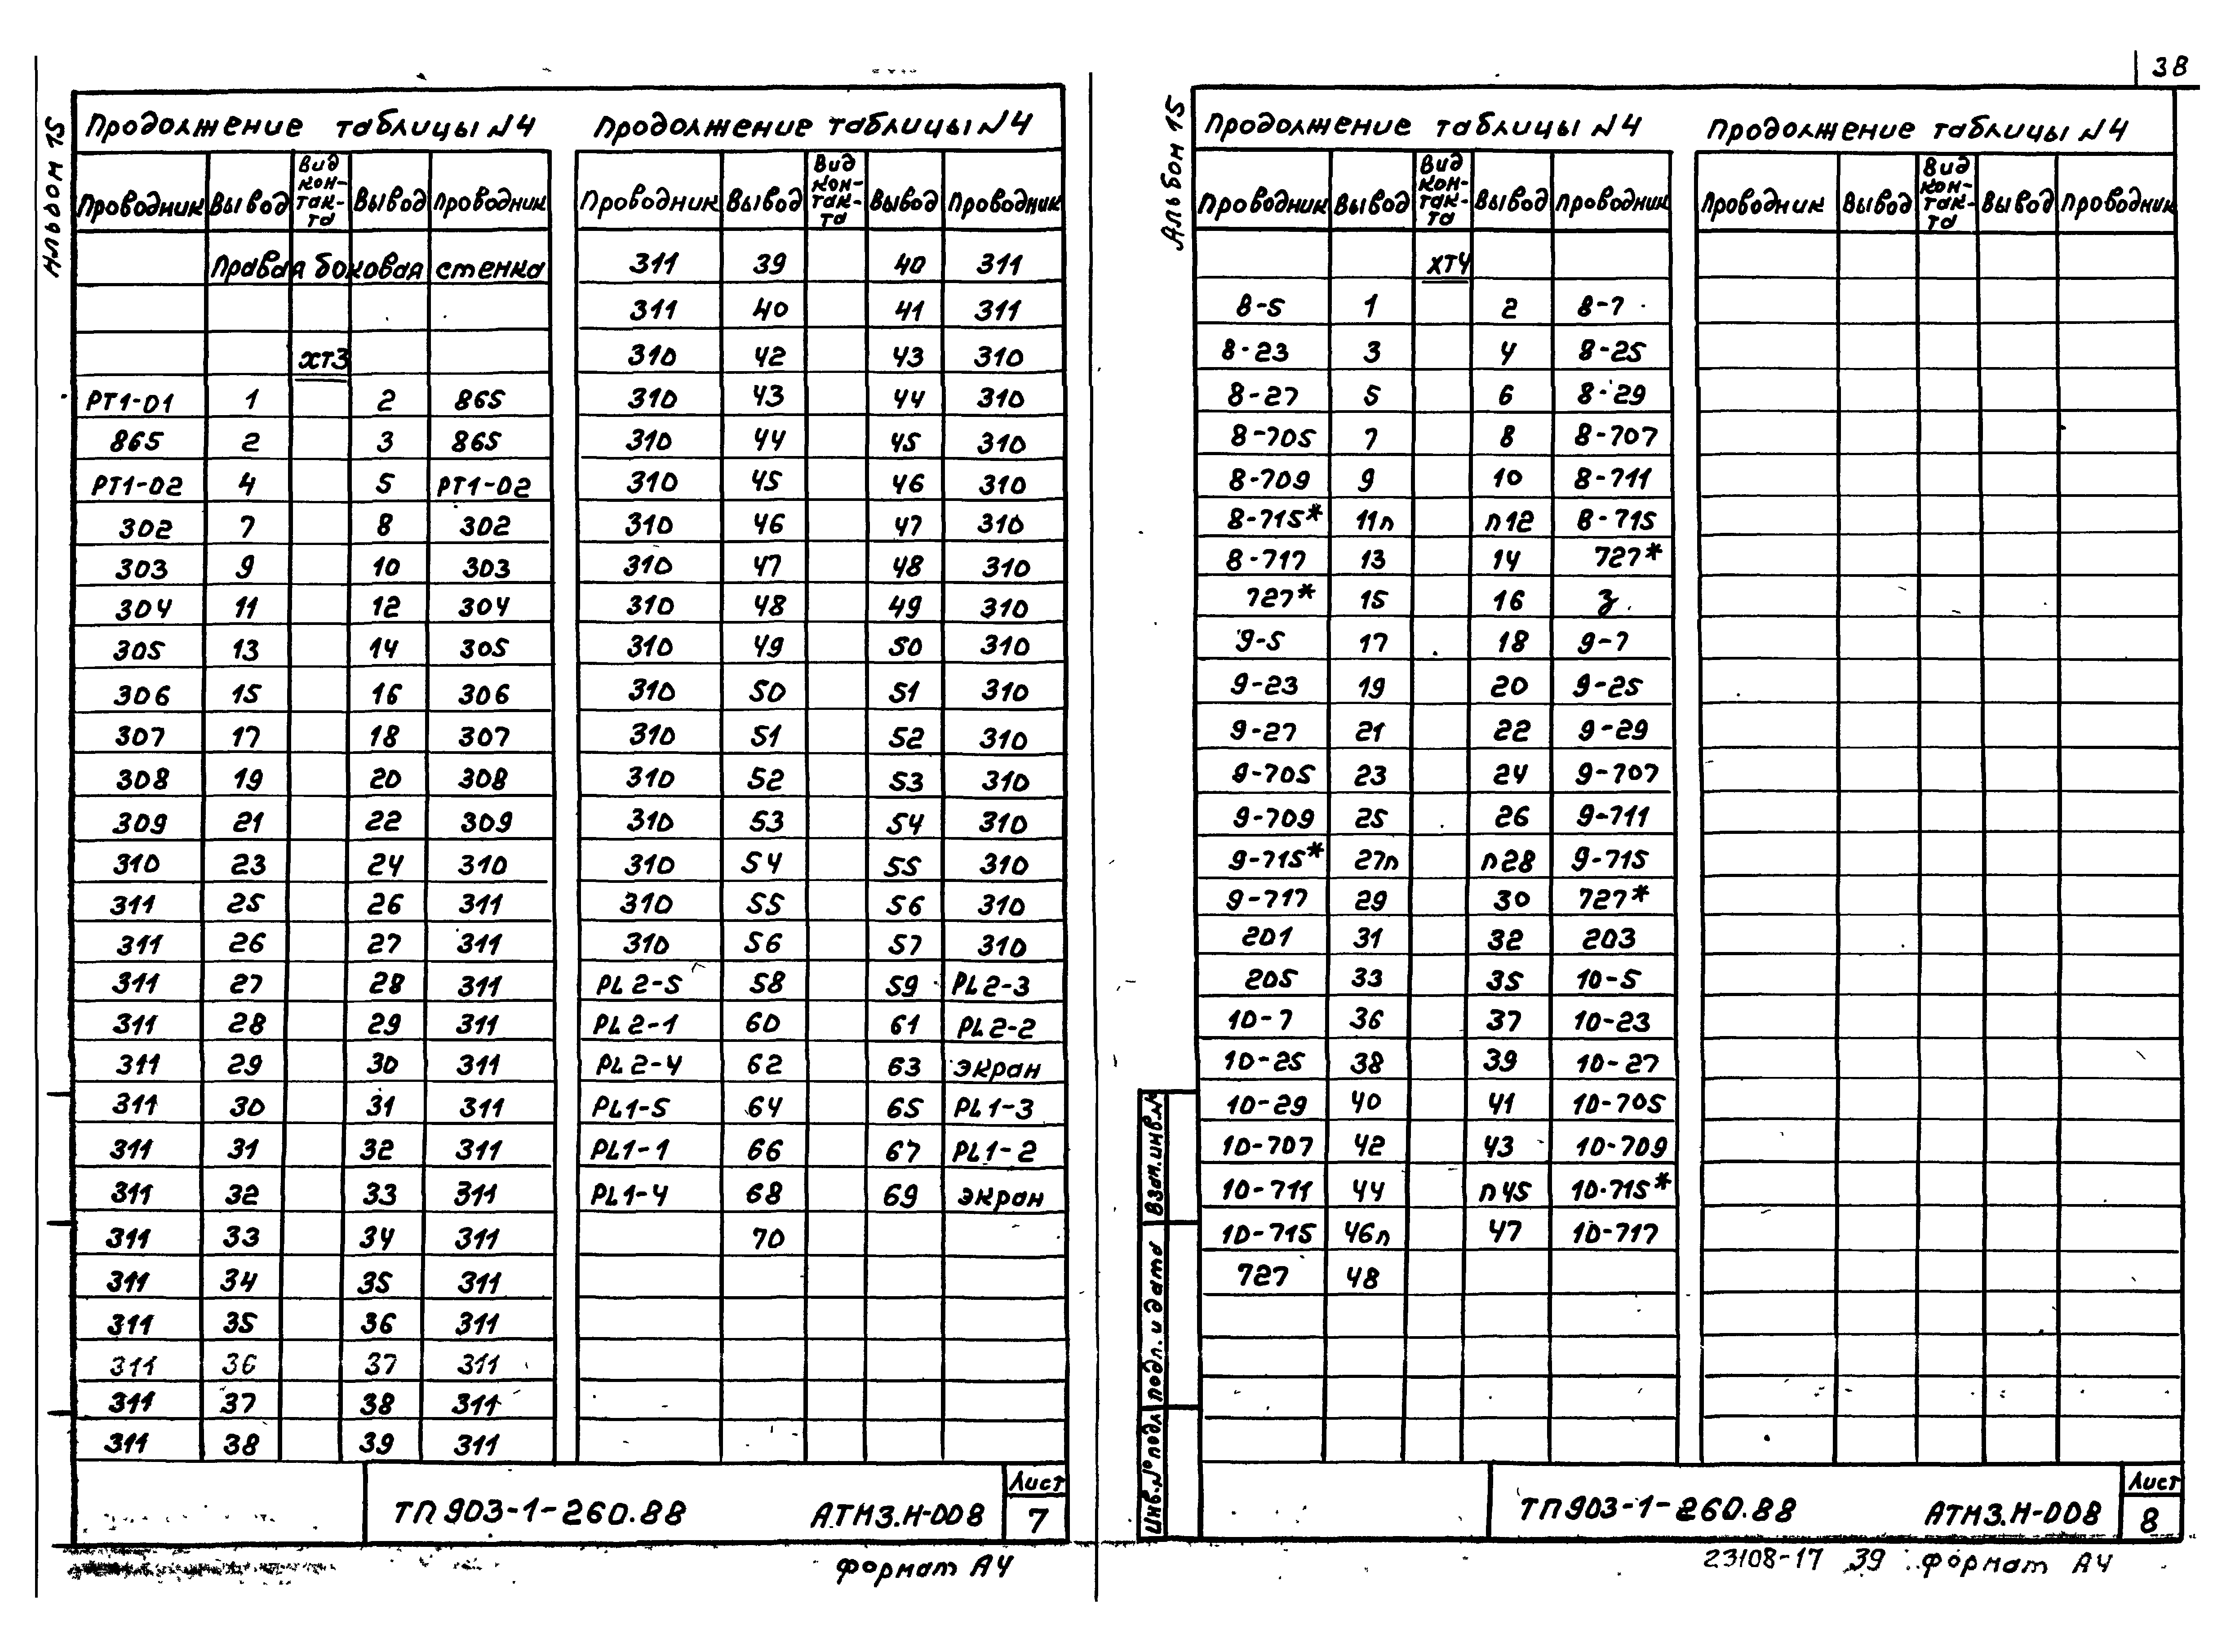 38
Альбом 15
Продолжение таблицы N4
Проводник Вывод Вид кон-так-та Вывод Проводник
Правая боковая стенка
XT3
PT1-01 1 2 865
865 2 3 865
PT1-02 4 5 PT1-02
302 7 8 302
303 9 10 303
304 11 12 304
305 13 14 305
306 15 16 306
307 17 18 307
308 19 20 308
309 21 22 309
310 23 24 310
311 25 26 311
311 26 27 311
311 27 28 311
311 28 29 311
311 29 30 311
311 30 31 311
311 31 32 311
311 32 33 311
311 33 34 311
311 34 35 311
311 35 36 311
311 36 37 311
311 37 38 311
311 38 39 311
Продолжение таблицы N4
Проводник Вывод Вид кон-так-та Вывод Проводник
311 39 40 311
311 40 41 311
310 42 43 310
310 43 44 310
310 44 45 310
310 45 46 310
310 46 47 310
310 47 48 310
310 48 49 310
310 49 50 310
310 50 51 310
310 51 52 310
310 52 53 310
310 53 54 310
310 54 55 310
310 55 56 310
310 56 57 310
PL2-5 58 59 PL2-3
PL2-1 60 61 PL2-2
PL2-4 62 63 экран
PL1-5 64 65 PL1-3
PL1-1 66 67 PL1-2
PL1-4 68 69 экран
70
ТП903-1-260.88 АТМ3.Н-008 Лист 7
Формат А4
Альбом 15
Продолжение таблицы N4
Проводник Вывод Вид кон-так-та Вывод Проводник
XT4
8-5 1 2 8-7
8-23 3 4 8-25
8-27 5 6 8-29
8-705 7 8 8-707
8-709 9 10 8-711
8-715* 11п п12 8-715
8-717 13 14 727*
727* 15 16 З
9-5 17 18 9-7
9-23 19 20 9-25
9-27 21 22 9-29
9-705 23 24 9-707
9-709 25 26 9-711
9-715* 27п п28 9-715
9-717 29 30 727*
201 31 32 203
205 33 35 10-5
10-7 36 37 10-23
10-25 38 39 10-27
10-29 40 41 10-705
10-707 42 43 10-709
10-711 44 п45 10-715*
10-715 46п 47 10-717
727 48
Продолжение таблицы N4
Проводник Вывод Вид кон-так-та Вывод Проводник
Взам.инв.N
подл. и дата
Инв.№подл
ТП903-1-260.88 АТМ3.Н-008 Лист 8
23108-17 39 Формат А4